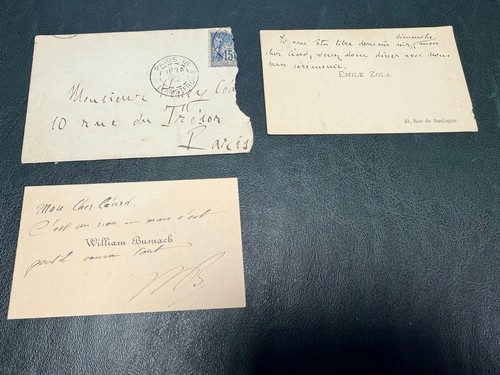 PARIS 18
15
Monsieur
10 rue du Trésor
Paris
dimanche
Si vous êtes libre demain soir, mon
cher Céard, venez donc dîner avec nous
sans cérémonie.
EMILE ZOLA
23, Rue de Boulogne
Mon Cher Céard.
C'est un rien mais c'est
William Busnach
tout
WB